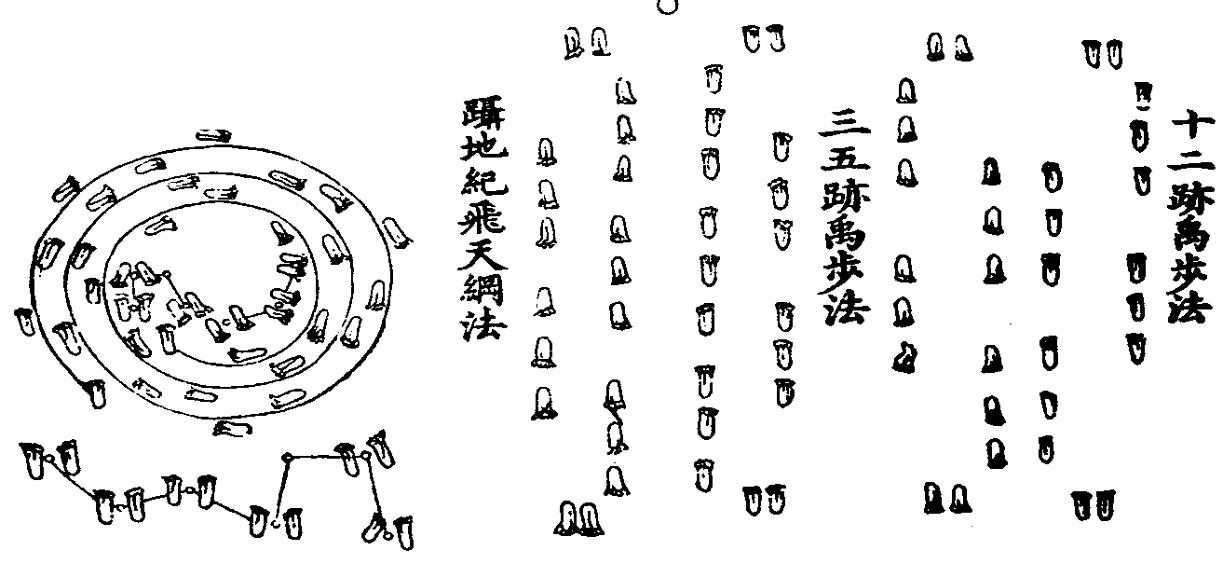 十二跡禹步法
三五跡禹步法
躡地紀飛天綱法